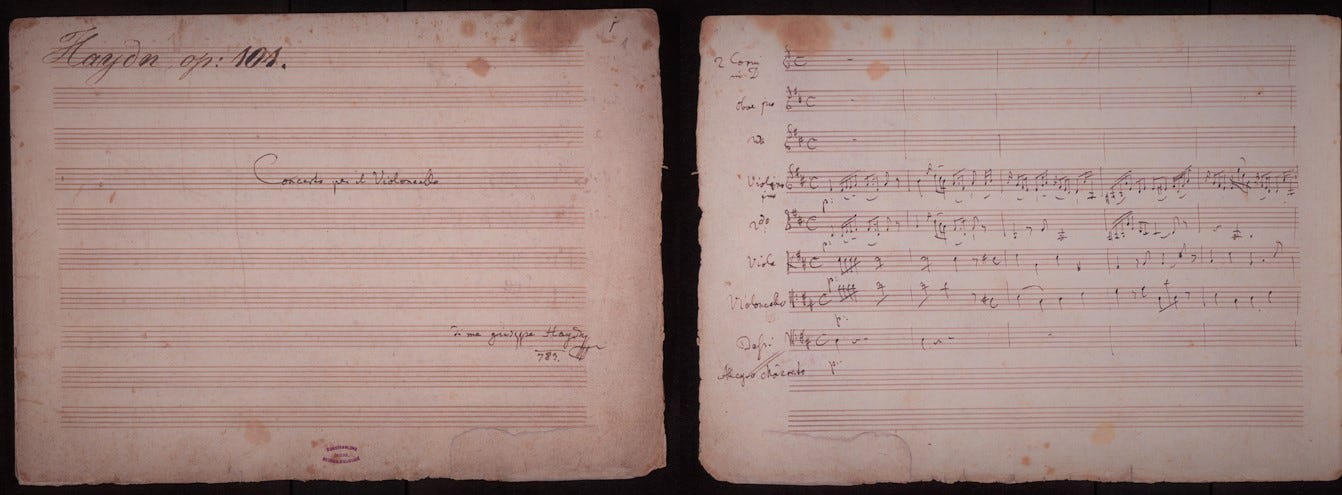 Haydn op: 101.
1
Concerto per il Violoncello
di me giuseppe Haydn
783.
2 Corni
in D
Oboe pmo
Violino
pmo
Viola
Violoncello
p:
p:
p:
p:
p:
Bassi
Allegro Moderato